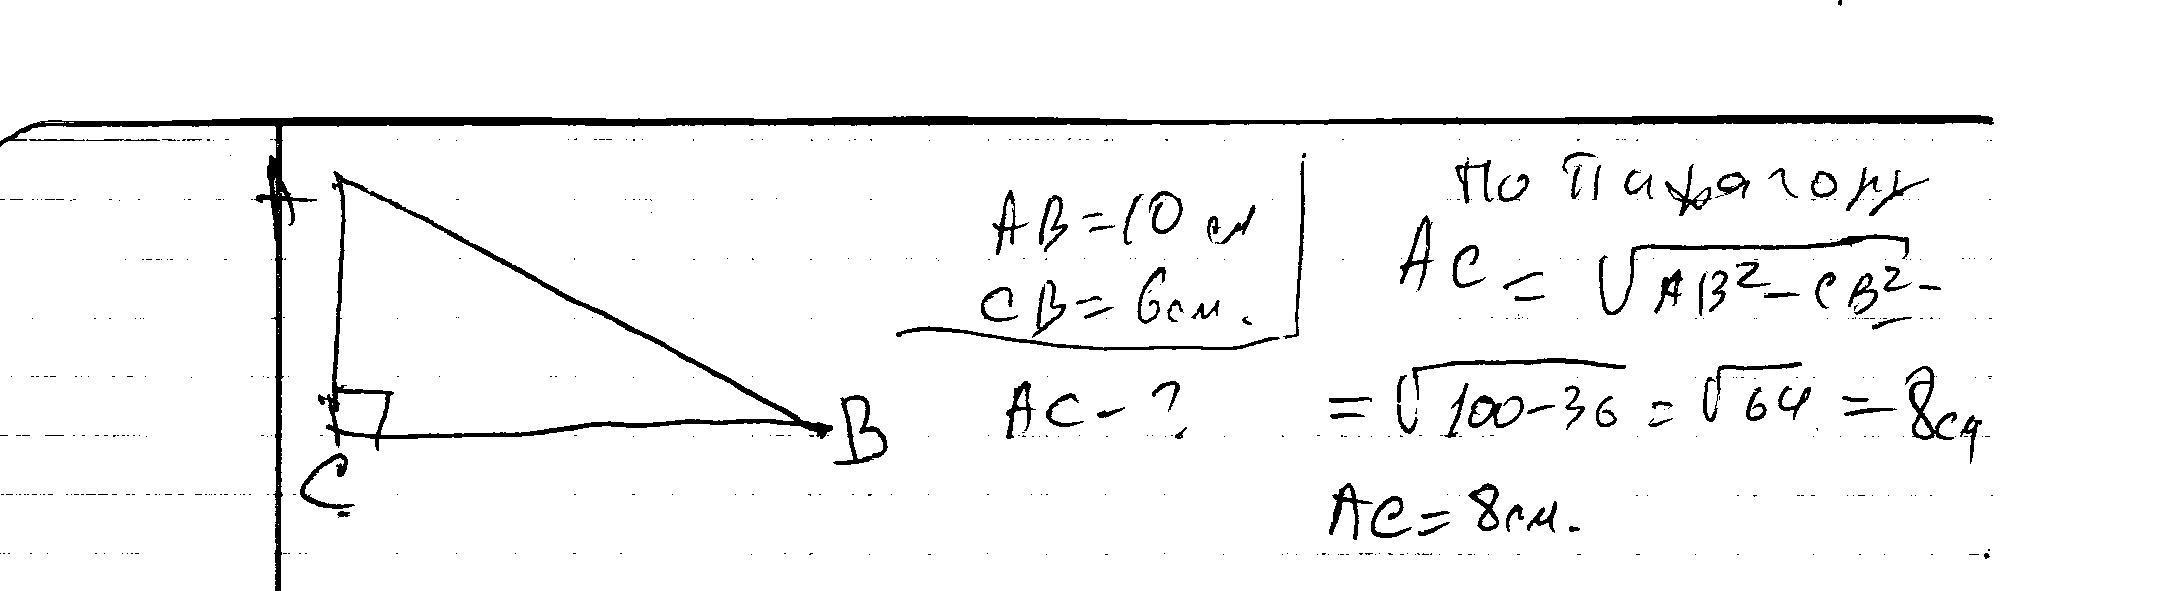 A
C
B
AB=10 см
CB=6см.
AC-?
По Пифагору
AC = √AB²-CB² =
= √100-36 = √64 = 8см
AC=8см.